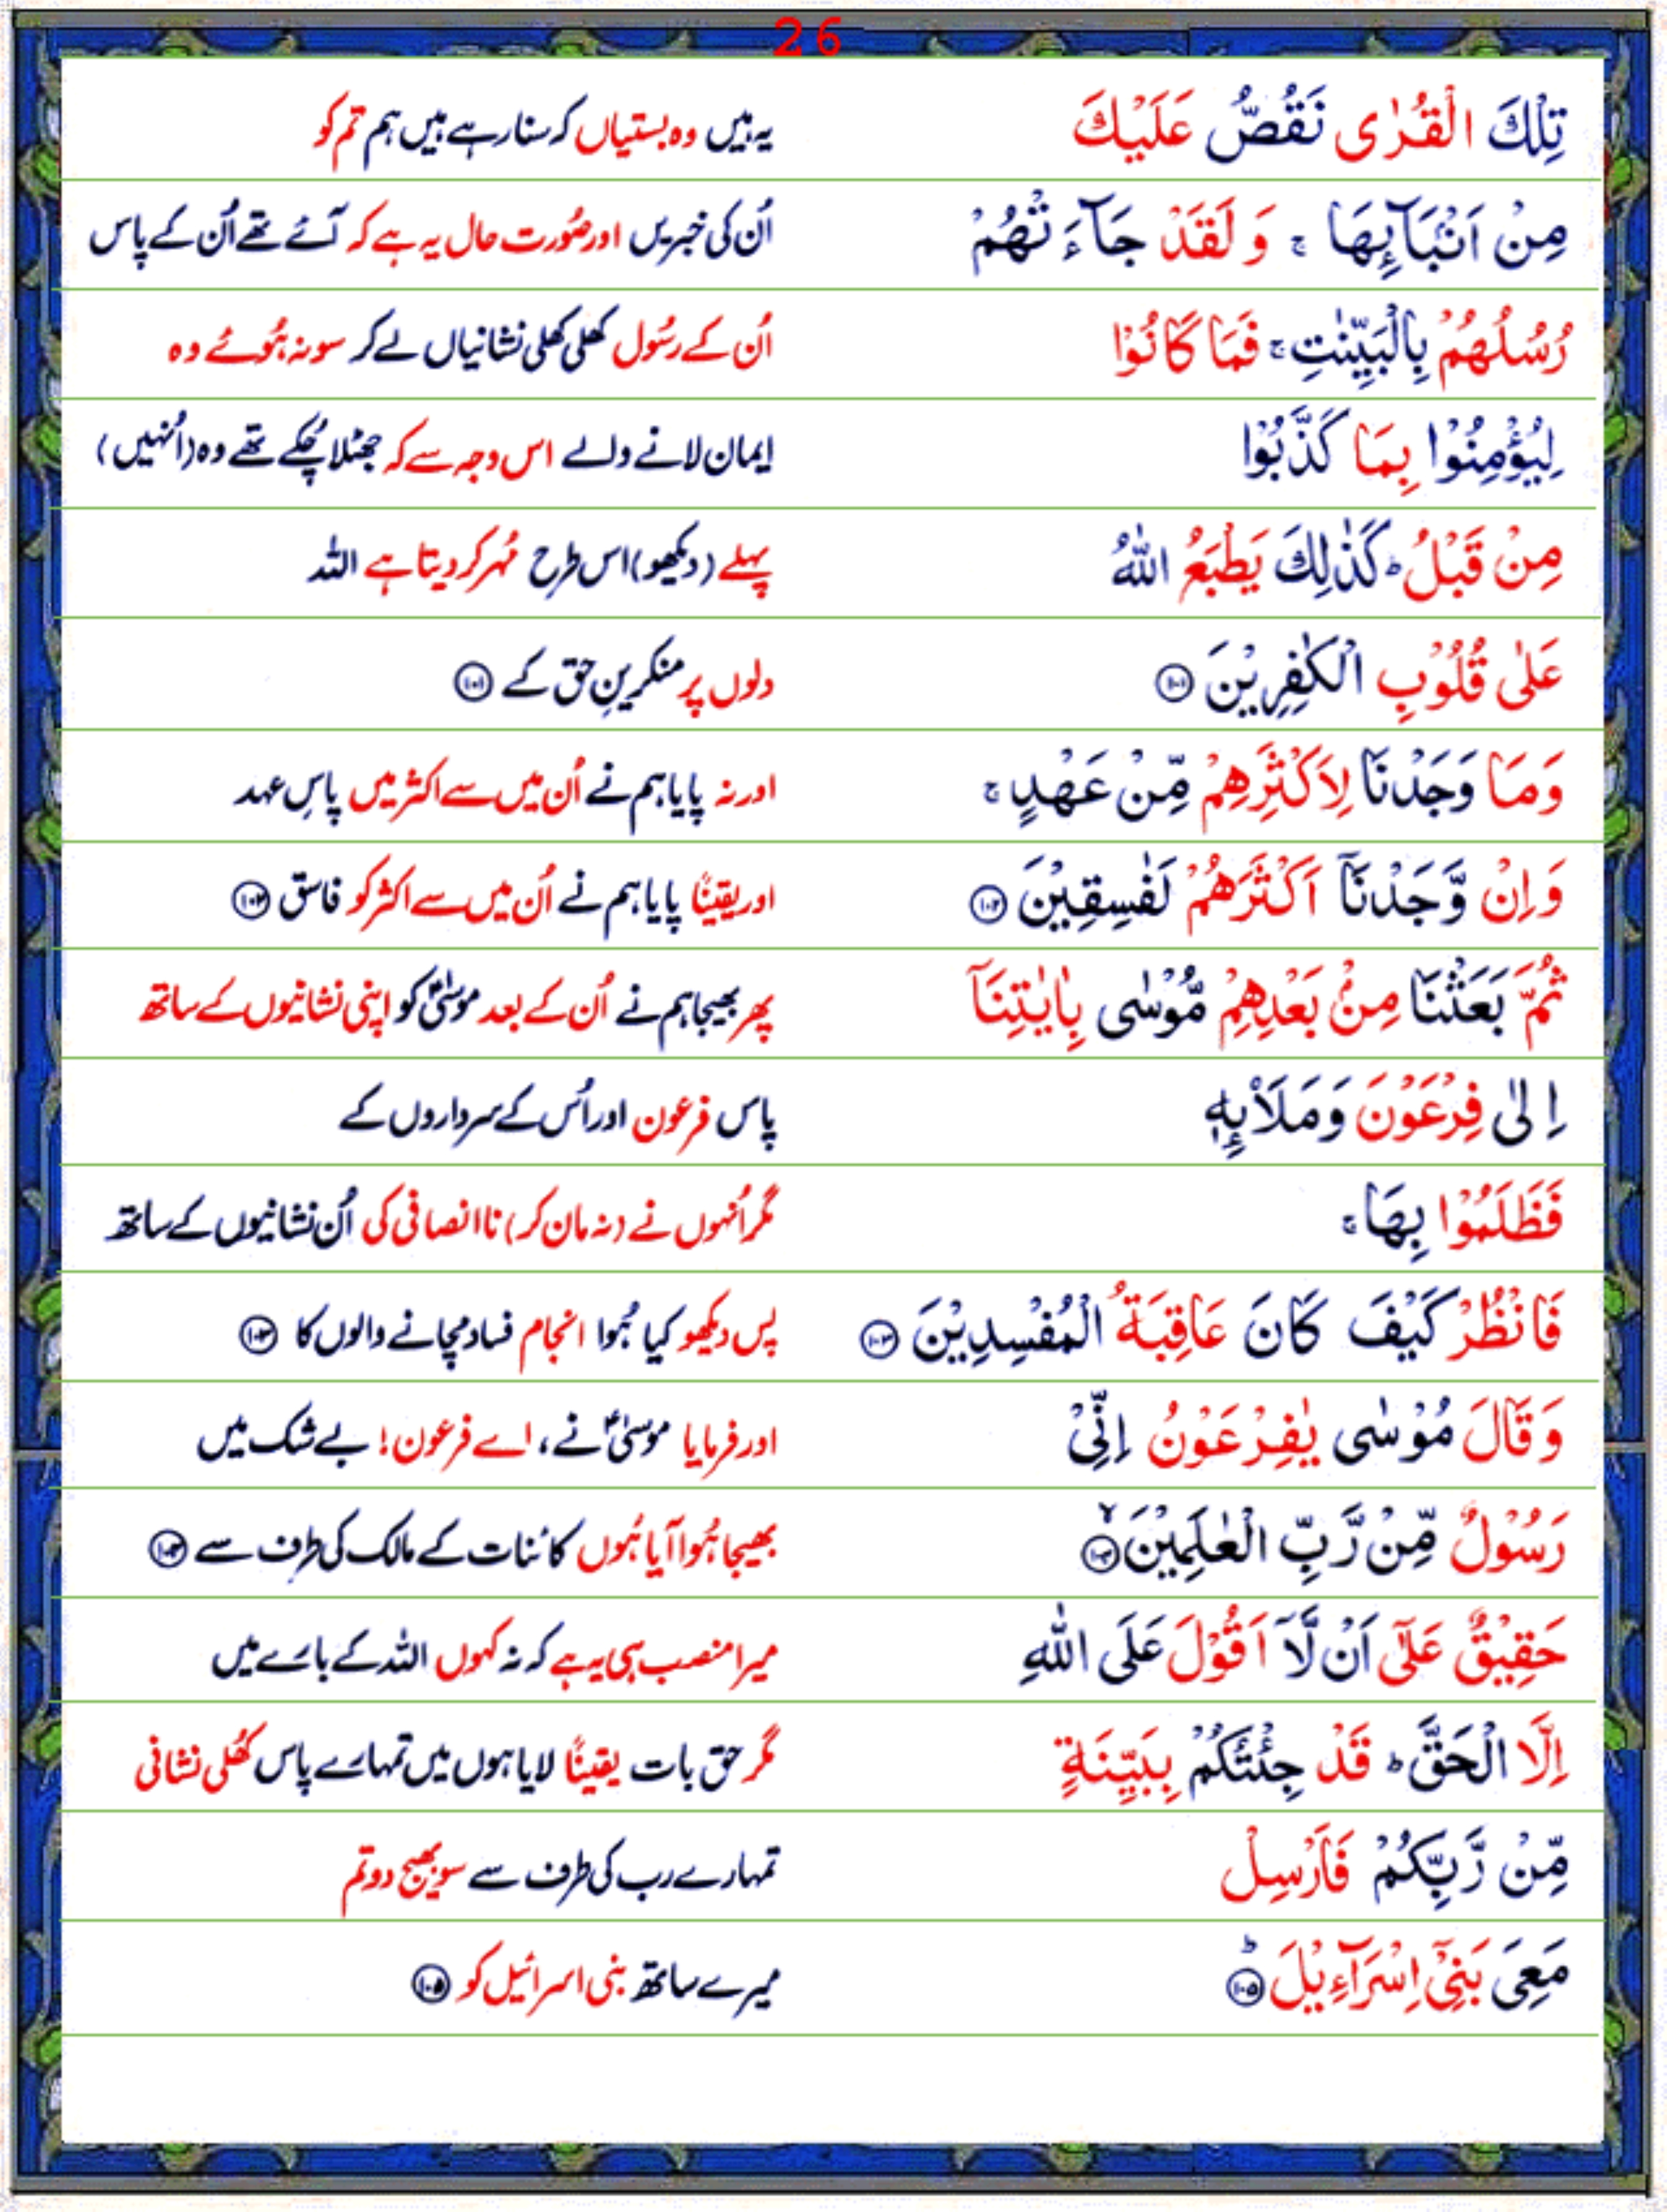 26
تِلْكَ الْقُرٰى نَقُصُّ عَلَيْكَ یہ ہیں وہ بستیاں کہ سنا رہے ہیں ہم تم کو
مِنْ اَنْۢبَآئِهَا ۚ وَ لَقَدْ جَآءَتْهُمْ اُن کی خبریں اور صُورت حال یہ ہے کہ آئے تھے اُن کے پاس
رُسُلُهُمْ بِالْبَيِّنٰتِ ۚ فَمَا كَانُوْا اُن کے رسُول کھلی کھلی نشانیاں لے کر سو نہ ہُوئے وہ
لِيُؤْمِنُوْا بِمَا كَذَّبُوْا ایمان لانے والے اس وجہ سے کہ جھٹلا چُکے تھے وہ (اُنہیں)
مِنْ قَبْلُ ؕ كَذٰلِكَ يَطْبَعُ اللّٰهُ پہلے (دیکھو) اس طرح مُہر کر دیتا ہے اللہ
عَلٰى قُلُوْبِ الْكٰفِرِيْنَ ۝۱۰۱ دلوں پر منکرینِ حق کے ۝۱۰۱
وَمَا وَجَدْنَا لِاَكْثَرِهِمْ مِّنْ عَهْدٍ ۚ اور نہ پایا ہم نے اُن میں سے اکثر میں پاسِ عہد
وَ اِنْ وَّجَدْنَاۤ اَكْثَرَهُمْ لَفٰسِقِيْنَ ۝۱۰۲ اور یقیناً پایا ہم نے اُن میں سے اکثر کو فاسق ۝۱۰۲
ثُمَّ بَعَثْنَا مِنْۢ بَعْدِهِمْ مُّوْسٰى بِاٰيٰتِنَاۤ پھر بھیجا ہم نے اُن کے بعد موسیٰؑ کو اپنی نشانیوں کے ساتھ
اِلٰى فِرْعَوْنَ وَمَلَا۟ئِهٖ پاس فرعون اور اُس کے سرداروں کے
فَظَلَمُوْا بِهَا ۚ مگر اُنہوں نے (نہ مان کر) ناانصافی کی اُن نشانیوں کے ساتھ
فَانْظُرْ كَيْفَ كَانَ عَاقِبَةُ الْمُفْسِدِيْنَ ۝۱۰۳ پس دیکھو کیا ہُوا انجام فساد مچانے والوں کا ۝۱۰۳
وَقَالَ مُوْسٰى يٰفِرْعَوْنُ اِنِّىْ اور فرمایا موسیٰؑ نے، اے فرعون! بے شک میں
رَسُوْلٌ مِّنْ رَّبِّ الْعٰلَمِيْنَ ۙ۝۱۰۴ بھیجا ہُوا آیا ہُوں کائنات کے مالک کی طرف سے ۝۱۰۴
حَقِيْقٌ عَلٰٓى اَنْ لَّاۤ اَقُوْلَ عَلَى اللّٰهِ میرا منصب ہی یہ ہے کہ نہ کہوں اللہ کے بارے میں
اِلَّا الْحَقَّ ؕ قَدْ جِئْتُكُمْ بِبَيِّنَةٍ مگر حق بات یقیناً لایا ہوں میں تمہارے پاس کھُلی نشانی
مِّنْ رَّبِّكُمْ فَاَرْسِلْ تمہارے رب کی طرف سے سو بھیج دو تم
مَعِىَ بَنِىْۤ اِسْرَآءِيْلَ ؕ۝۱۰۵ میرے ساتھ بنی اسرائیل کو ۝۱۰۵